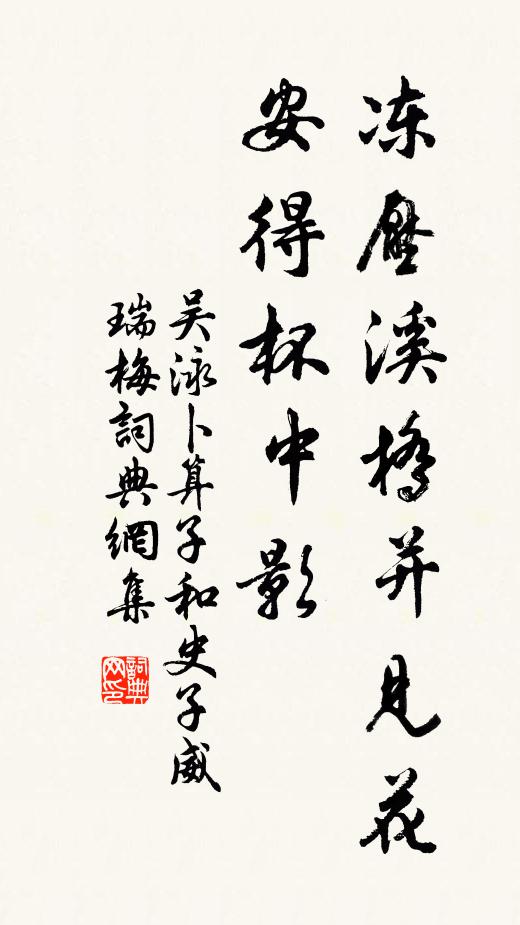 冻壓溪橋并见花
安得杯中影
吴泳卜算子和史子威
瑞梅詞典網集
詞典网印